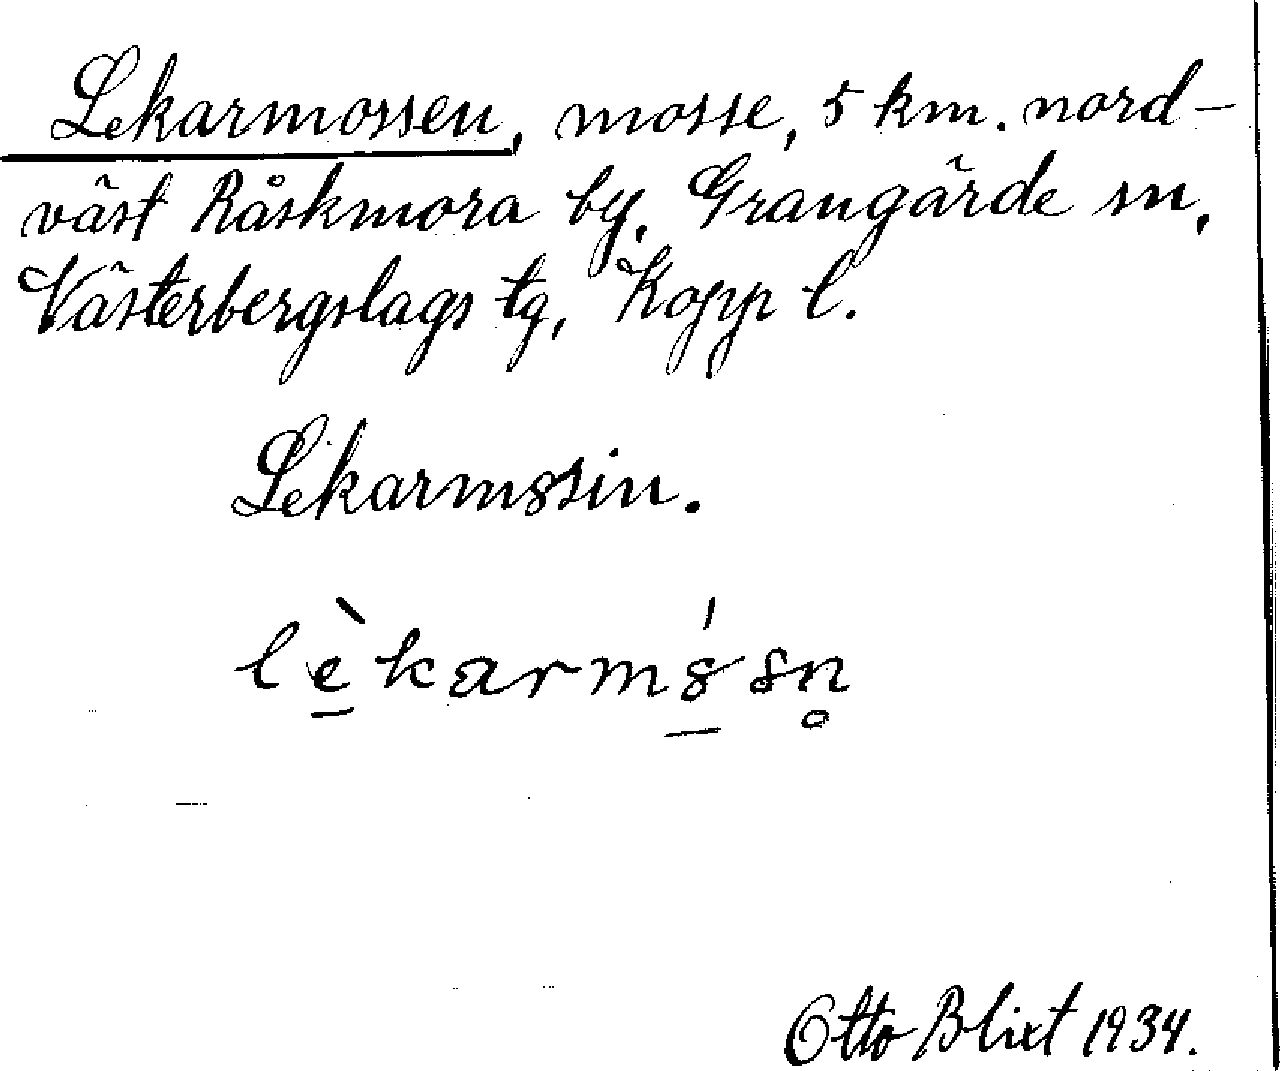 Lekarmossen, mosse, 5 km. nord-
väst Råskmora by. Grangärde sn.
Västerbergslags tg, Kopp l.
Lekarm8ssin.
lèkarm8́sn̥
Otto Blixt 1934.